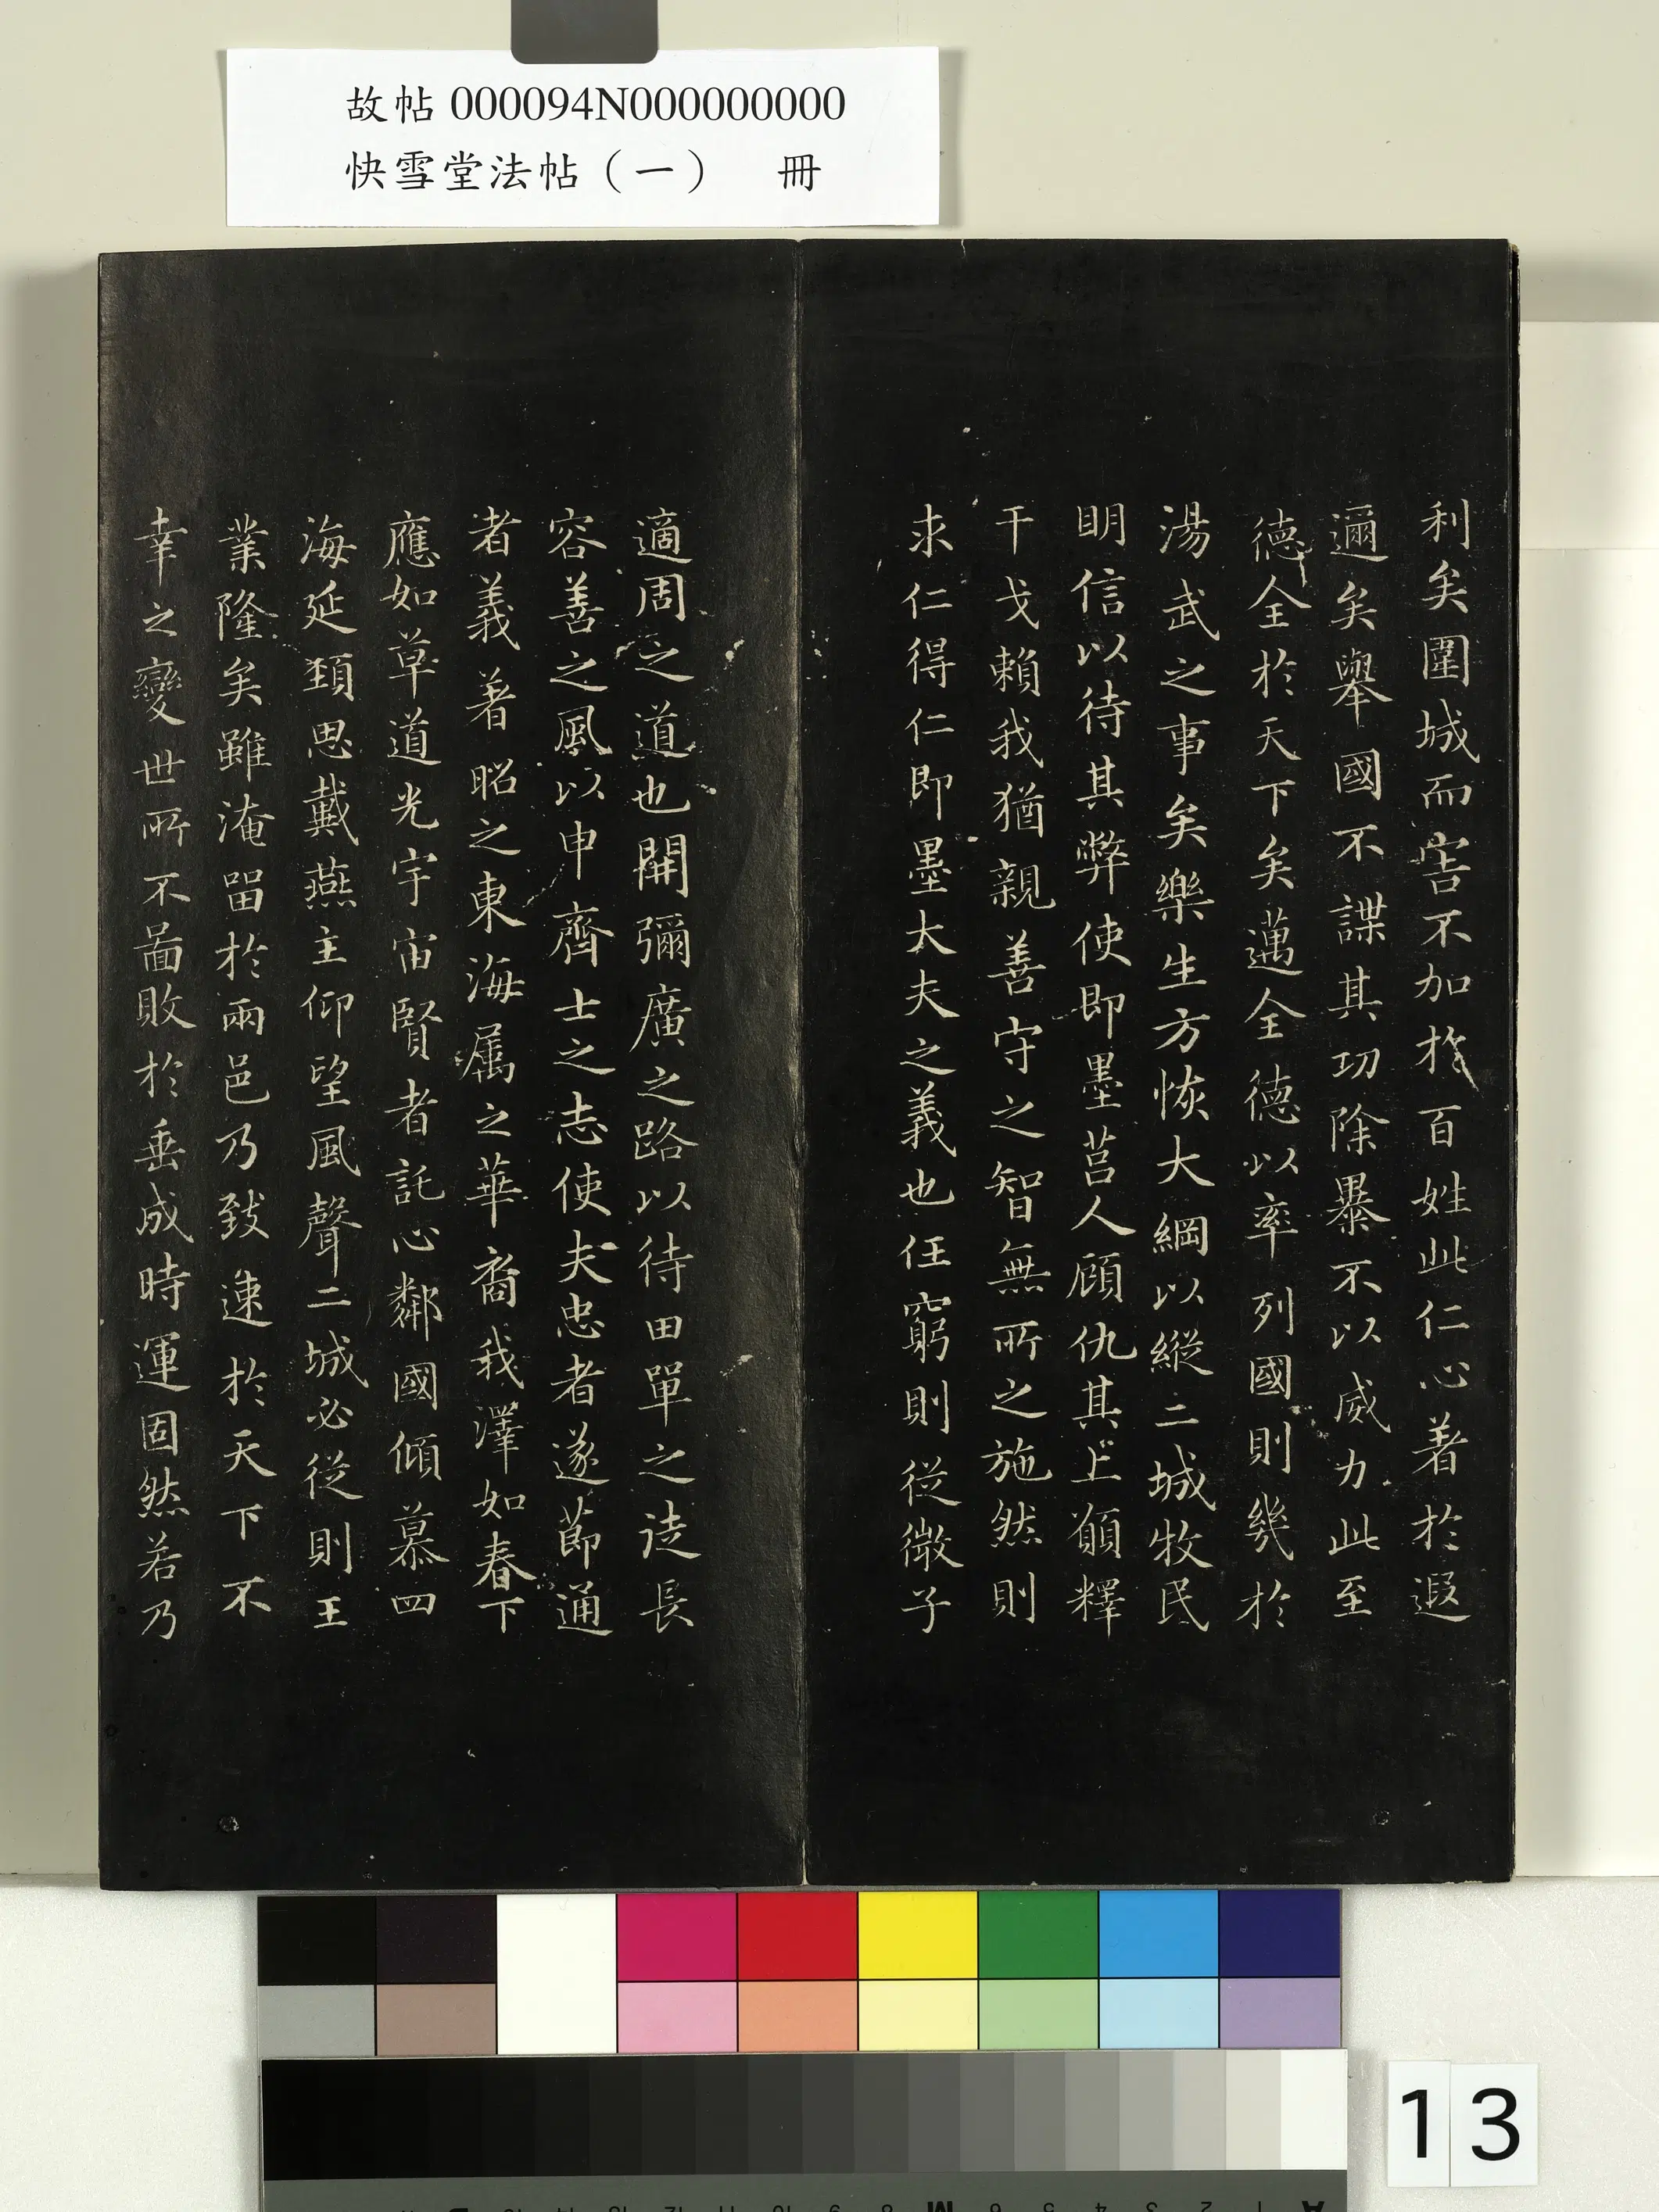 故帖 000094N000000000
快雪堂法帖（一） 冊
利矣圍城而害不加於百姓此仁心著於遐
邇矣舉國不謀其功除暴不以威力此至
德全於天下矣邁全德以率列國則幾於
湯武之事矣樂生方恢大綱以縱二城牧民
明信以待其弊使即墨莒人顧仇其上願釋
干戈賴我猶親善守之智無所之施然則
求仁得仁即墨大夫之義也任窮則從微子
適周之道也開彌廣之路以待田單之徒長
容善之風以申齊士之志使夫忠者遂節通
者義著昭之東海属之華裔我澤如春下
應如草道光宇宙賢者託心鄰國傾慕四
海延頚思戴燕主仰望風聲二城必從則王
業隆矣雖淹留於兩邑乃致速於天下不
幸之變世所不啚敗於垂成時運固然若乃
13